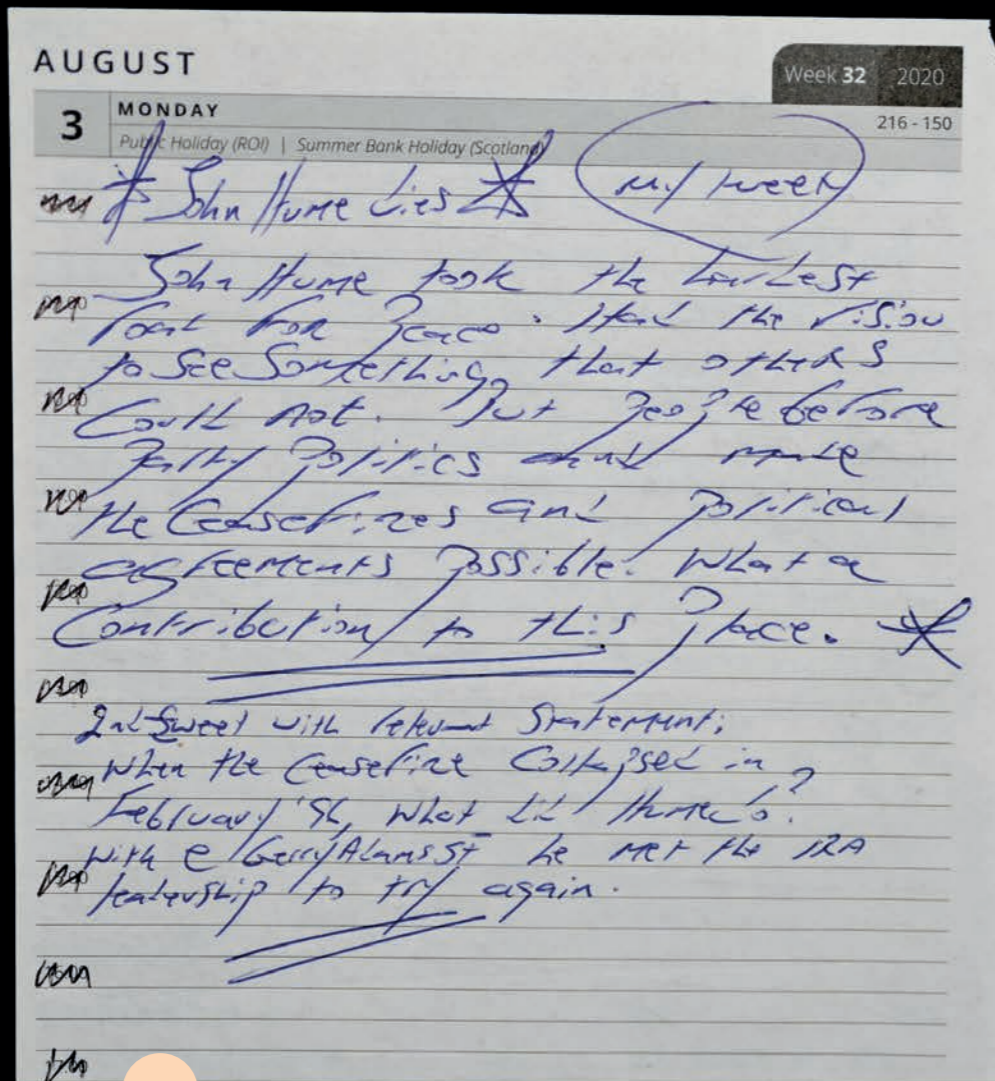 AUGUST
Week 32 2020
3 MONDAY
216 - 150
Public Holiday (ROI) | Summer Bank Holiday (Scotland)
* John Hume dies * my tweet
John Hume took the hardest
road for Peace. Had the vision
to see something that others
could not. Put people before
party politics and made
the ceasefires and political
agreements possible. What a
contribution to this place. *
2nd tweet with relevant statement:
When the ceasefire collapsed in
February '96, what did Hume do?
With @GerryAdamsSF he met the IRA
leadership to try again.